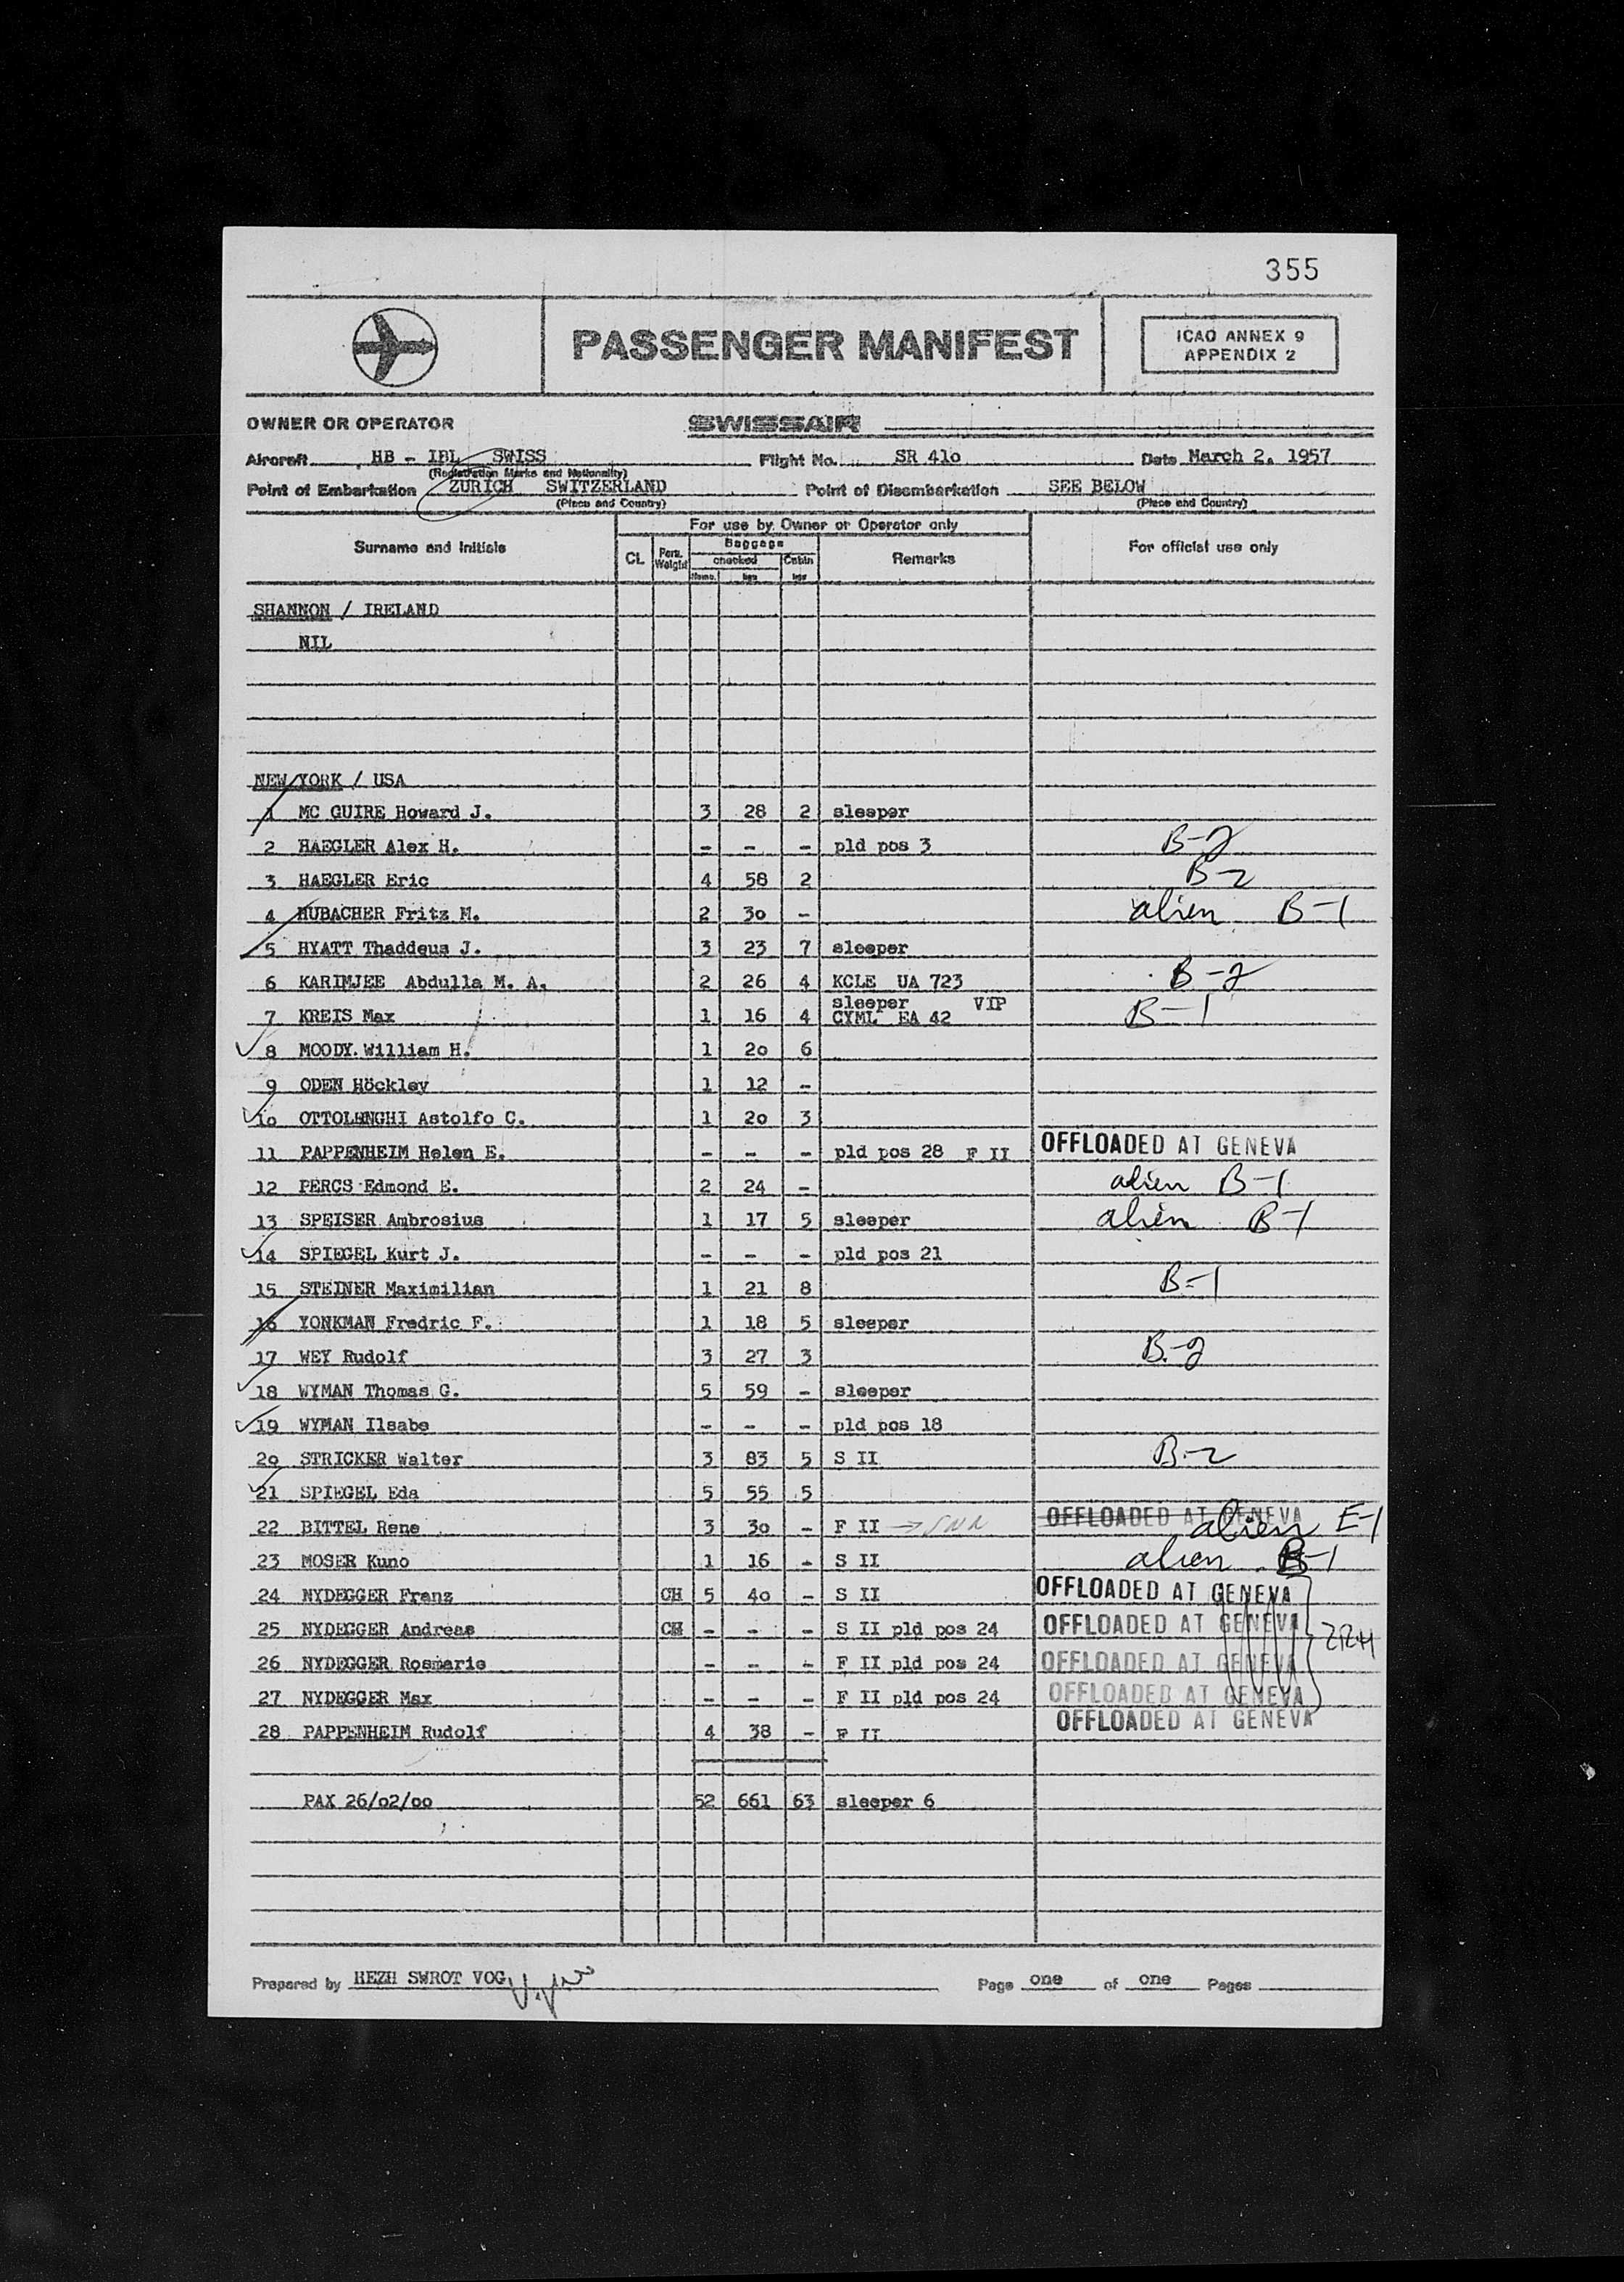 355
PASSENGER MANIFEST
ICAO ANNEX 9
APPENDIX 2
OWNER OR OPERATOR SWISSAIR
Aircraft HB - IBL SWISS Flight No. SR 41o Date March 2. 1957
(Registration Marks and Nationality)
Point of Embarkation ZURICH SWITZERLAND Point of Disembarkation SEE BELOW
(Place and Country) (Place and Country)
For use by Owner or Operator only
Surname and initials CL Pers. Weight Baggage checked Cabin Remarks For official use only
SHANNON / IRELAND
NIL
NEW YORK / USA
1 MC GUIRE Howard J. 3 28 2 sleeper
2 HAEGLER Alex H. - - - pld pos 3 B-2
3 HAEGLER Eric 4 58 2 B-2
4 HUBACHER Fritz M. 2 3o - alien B-1
5 HYATT Thaddeus J. 3 23 7 sleeper
6 KARIMJEE Abdulla M. A. 2 26 4 KCLE UA 723 B-2
sleeper VIP
7 KREIS Max 1 16 4 CYML EA 42 B-1
8 MOODY.William H. 1 2o 6
9 ODEN Höckley 1 12 -
1o OTTOLENGHI Astolfo C. 1 2o 3
11 PAPPENHEIM Helen E. - - - pld pos 28 F II OFFLOADED AT GENEVA
12 PERCS Edmond E. 2 24 - alien B-1
13 SPEISER Ambrosius 1 17 5 sleeper alien B-1
14 SPIEGEL Kurt J. - - - pld pos 21
15 STEINER Maximilian 1 21 8 B-1
16 YONKMAN Fredric F. 1 18 5 sleeper
17 WEY Rudolf 3 27 3 B-2
18 WYMAN Thomas G. 5 59 - sleeper
19 WYMAN Ilsabe - - - pld pos 18
2o STRICKER Walter 3 83 5 S II B-2
21 SPIEGEL Eda 5 55 5
22 BITTEL Rene 3 3o - F II → SNN OFFLOADED AT GENEVA alien E-1
23 MOSER Kuno 1 16 - S II alien B-1
24 NYDEGGER Franz CH 5 4o - S II OFFLOADED AT GENEVA
25 NYDEGGER Andreas CH - - - S II pld pos 24 OFFLOADED AT GENEVA ZRH
26 NYDEGGER Rosmarie - - - F II pld pos 24 OFFLOADED AT GENEVA
27 NYDEGGER Max - - - F II pld pos 24 OFFLOADED AT GENEVA
28 PAPPENHEIM Rudolf 4 38 - F II OFFLOADED AT GENEVA
PAX 26/o2/oo 52 661 63 sleeper 6
Prepared by HEZH SWROT VOG Page one of one Pages